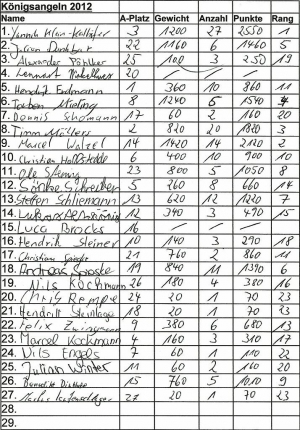 Königsangeln 2012
A-Platz Gewicht Anzahl Punkte Rang
1. 3 1200 27 2550 1
2. 22 1160 6 1460 5
3. Alexander 25 100 3 250 19
4. Lennart 20 / / /
5. Hendrik Erdmann 1 360 10 860 11
6. Torben 8 1240 6 1540 4
7. Dennis Schomann 17 60 2 160 20
8. Timm Möllers 2 820 20 1820 3
9. Marcel Watzel 14 1420 14 2120 2
10. Christian 6 400 10 900 10
11. Ole 23 800 5 1050 8
12. Sönke Schreiber 5 260 8 660 14
13. Stefan Schliemann 13 620 12 1220 7
14. 12 340 3 490 15
15. Luca Brocks 16 / / /
16. Hendrik Steiner 10 140 3 290 18
17. Christian 21 760 2 860 11
18. Andreas 19 840 11 1390 6
19. Nils Kochmann 26 180 4 380 16
20. Chris Rempe 24 20 1 70 23
21. Hendrik Steinlage 18 20 1 70 23
22. Felix Zwingmann 9 380 6 680 13
23. Marcel Kockmann 4 160 3 310 17
24. Nils Engels 7 60 1 110 22
25. Julian Winter 11 60 2 160 20
26. 15 760 5 1010 9
27. 27 20 1 70 23
28.
29.